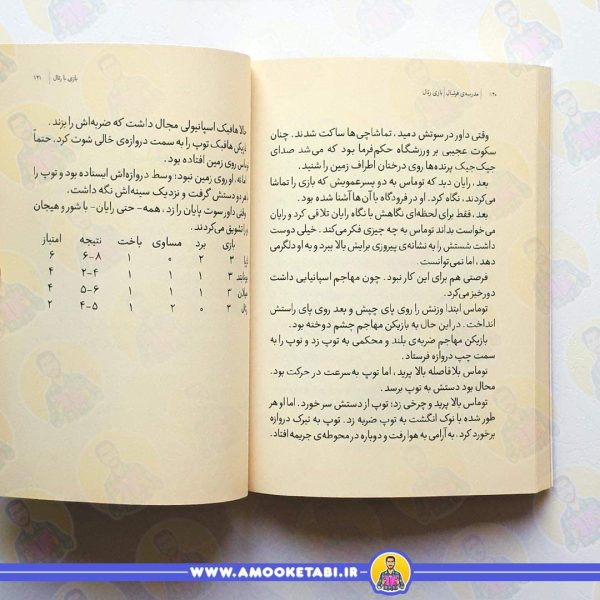 ۱۲۰ | مدرسه‌ی فوتبال | بازی رئال
وقتی داور در سوتش دمید، تماشاچی‌ها ساکت شدند. چنان
سکوت عجیبی بر ورزشگاه حکم‌فرما بود که می‌شد صدای
جیک‌جیک پرنده‌ها روی درختان اطراف زمین را شنید.
بعد، رایان دید که توماس به دو پسرعمویش که بازی را تماشا
می‌کردند، نگاه کرد. او در فرودگاه با آن‌ها آشنا شده بود.
بعد، فقط برای لحظه‌ای نگاهش با نگاه رایان تلاقی کرد و رایان
می‌خواست بداند توماس به چه چیزی فکر می‌کند. خیلی دوست
داشت شستش را به نشانه‌ی پیروزی برایش بالا ببرد و به او دلگرمی
دهد، اما نمی‌توانست.
فرصتی هم برای این کار نبود. چون مهاجم اسپانیایی داشت
دورخیز می‌کرد.
توماس ابتدا وزنش را روی پای چپش و بعد روی پای راستش
انداخت. در این حال به بازیکن مهاجم چشم دوخته بود.
بازیکن مهاجم ضربه‌ی بلند و محکمی به توپ زد و توپ را به
سمت چپ دروازه فرستاد.
توماس بلافاصله بالا پرید، اما توپ به‌سرعت در حرکت بود.
محال بود دستش به توپ برسد.
توماس بالا پرید و چرخی زد؛ توپ از دستش سر خورد. اما او هر
طور شده با نوک انگشت به توپ ضربه زد. توپ به تیرک دروازه
برخورد کرد، به آرامی به هوا رفت و دوباره در محوطه‌ی جریمه افتاد.
بازی با رئال | ۱۲۱
حالا هافبک اسپانیولی مجال داشت که ضربه‌اش را بزند.
هافبک توپ را به سمت دروازه‌ی خالی شوت کرد. حتماً
روی زمین افتاده بود.
نه، او روی زمین نبود؛ وسط دروازه‌اش ایستاده بود و توپ را
هر دو دستش گرفت و نزدیک سینه‌اش نگه داشت.
وقتی داور سوت پایان را زد، همه- حتی رایان- با شور و هیجان
تشویق می‌کردند.
بازی برد مساوی باخت نتیجه امتیاز
۳ ۲ ۰ ۱ ۸-۶ ۶
۳ ۱ ۱ ۱ ۴-۲ ۴
۳ ۱ ۱ ۱ ۶-۵ ۴
۳ ۰ ۲ ۱ ۵-۴ ۲
WWW.AMOOKETABI.IR